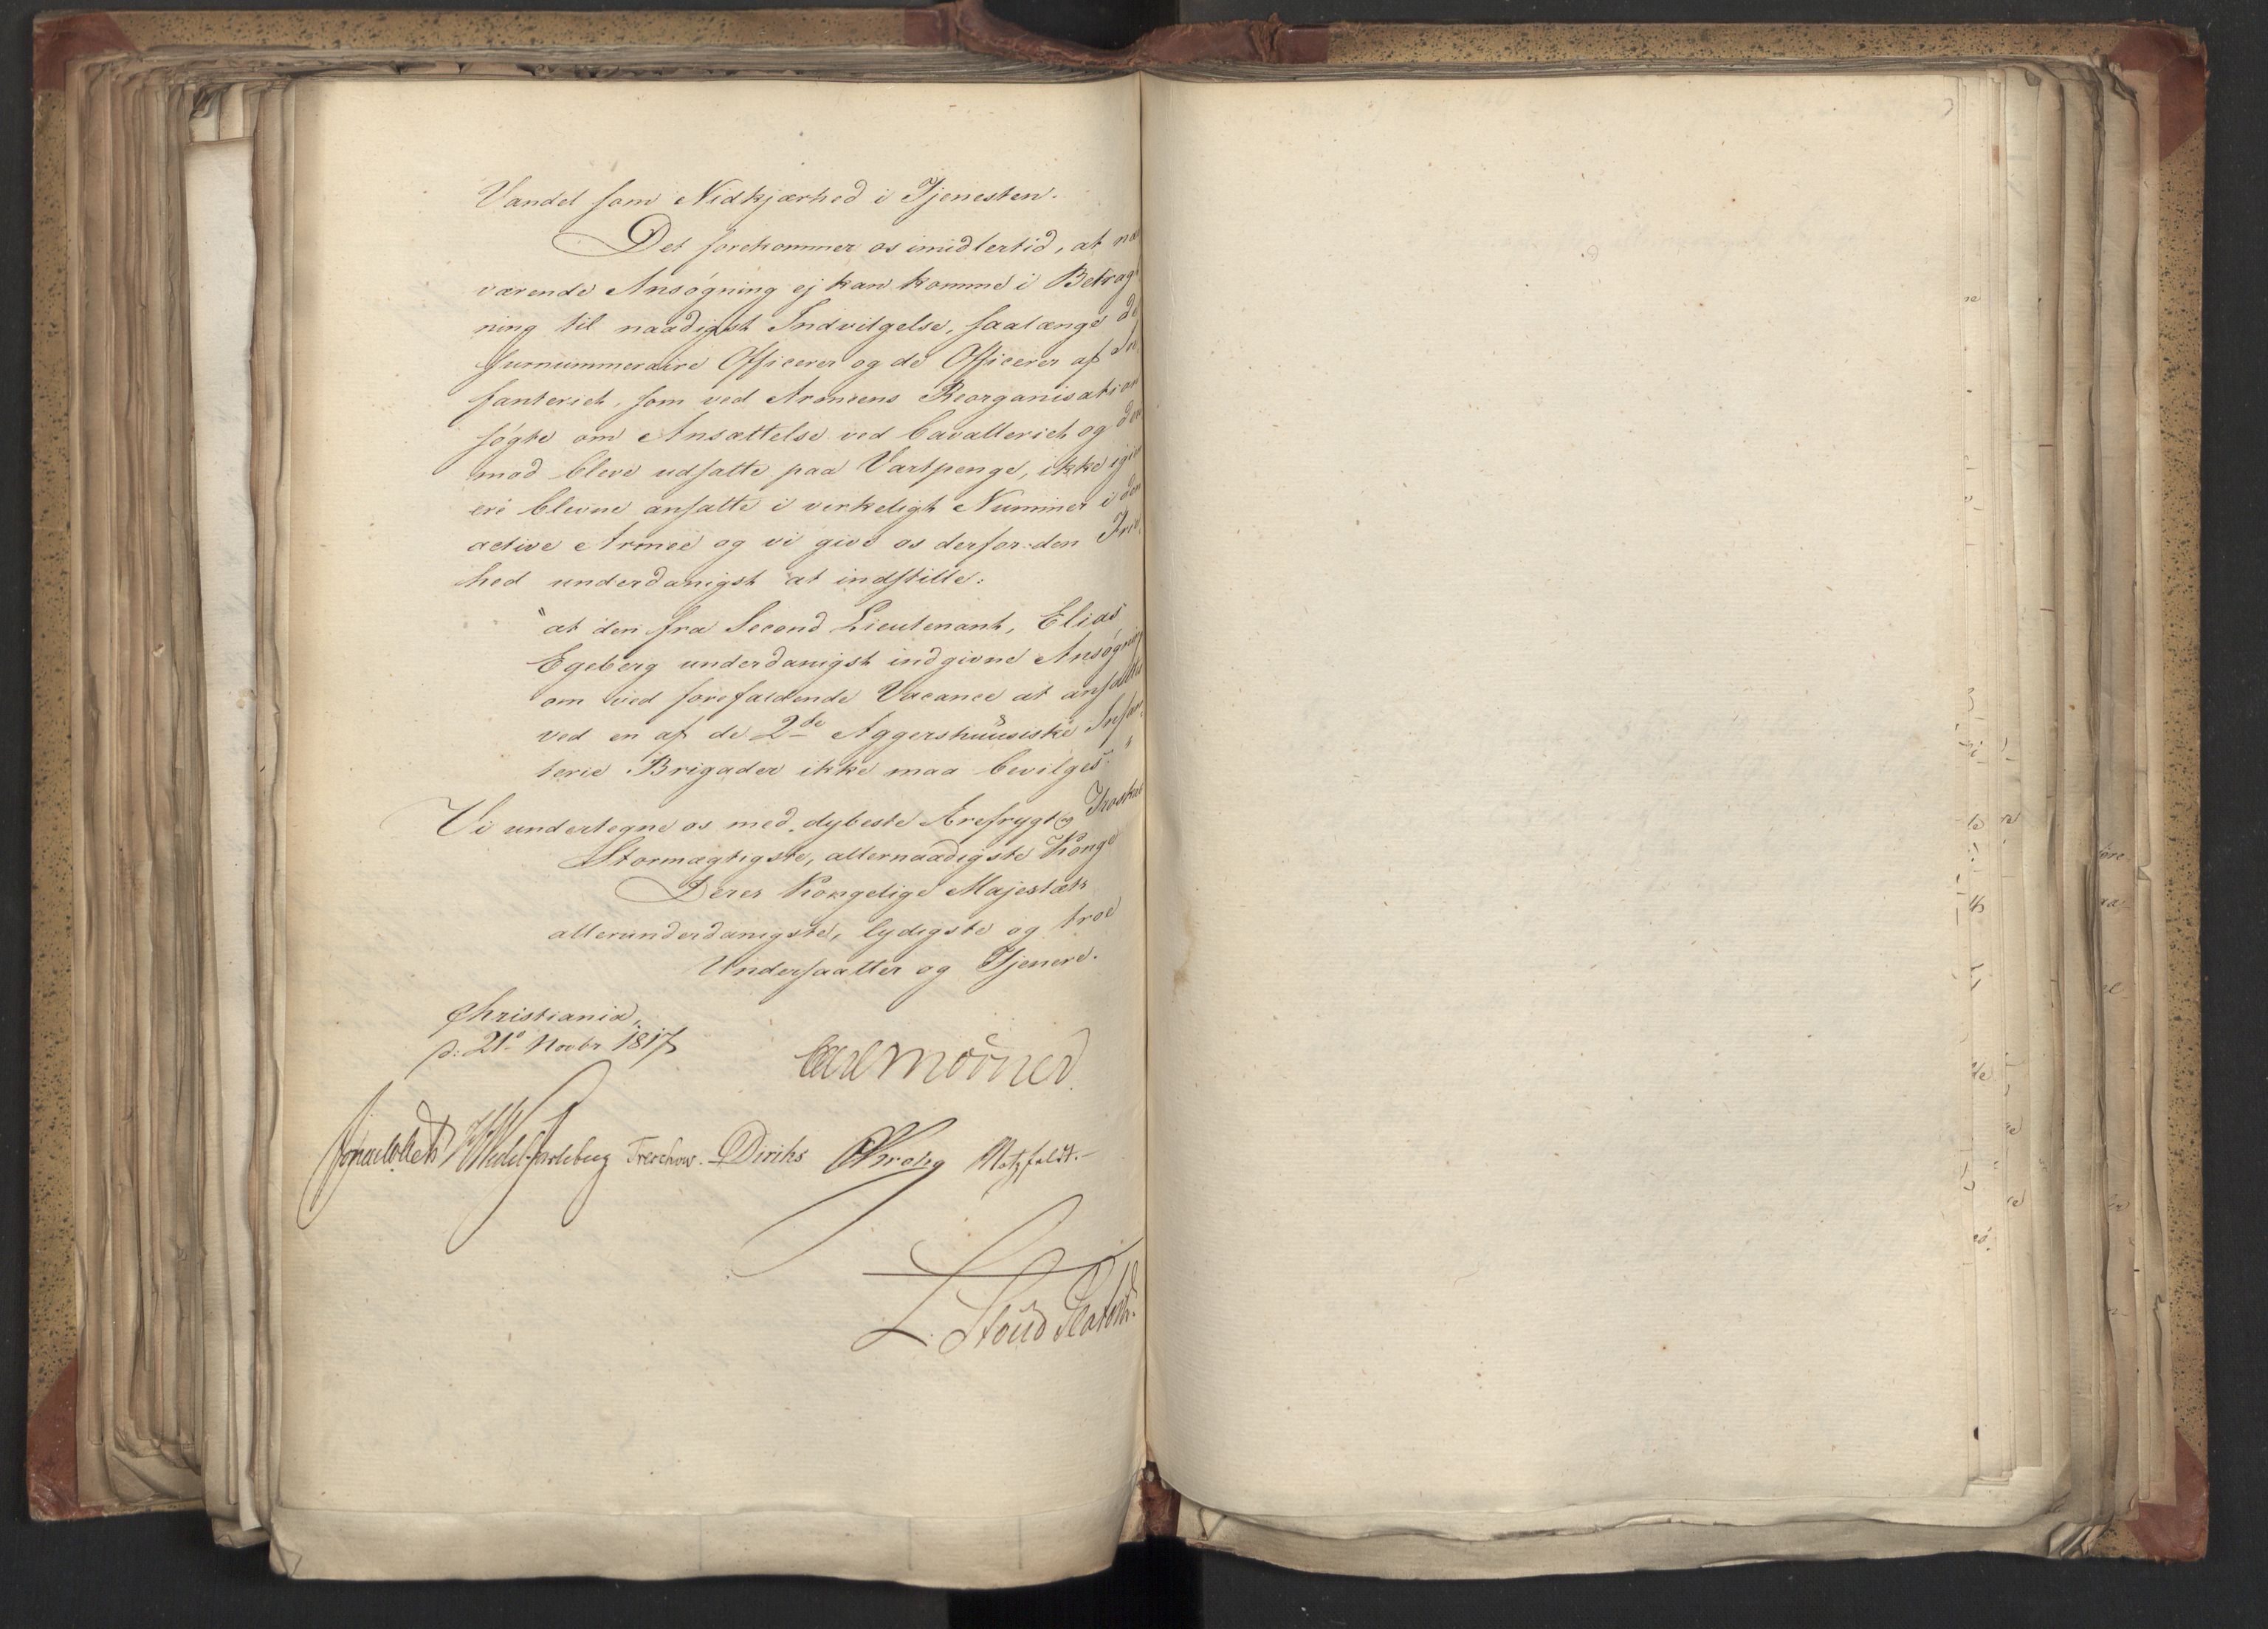 Vandel som Nidkjærhed i Tjenesten.
Det forekommer os imidlertid, at næ
værende Ansøgning ej kan komme i Betrag
ning til naadigst Indvilgelse, saalænge de
surnummeraire Officerer og de Officerer af In
fanteriet, som ved Armeens Reorganisation
søgte om Ansættelse ved Cavalleriet og der
mod bleve udsatte paa Vartpenge, ikke igien
ere blevne ansatte i virkeligt Nummer i den
active Armee og vi give os derfor den Fri
hed underdanigst at indstille:
"at den fra Second Lieutenant, Elias
Egeberg underdanigst indgivne Ansøgning
om ved forefaldende Vacance at ansættes
ved en af de 2de Aggershuusiske Infan
terie Brigader ikke maa bevilges"
Vi undertegne os med dybeste Ærefrygt og Troskab
Stormægtigste, allernaadigste Konge
Deres Kongelige Majestæts
allerunderdanigste, lydigste og troe
Undersaatter og Tjenere.
Christiania,
d: 21e Novbr 1817
Carl Mörner
Jonas Collett HWedel-Jarlsberg Treschow. Diriks Krohg Motzfeldt.
L. Stoud Platou